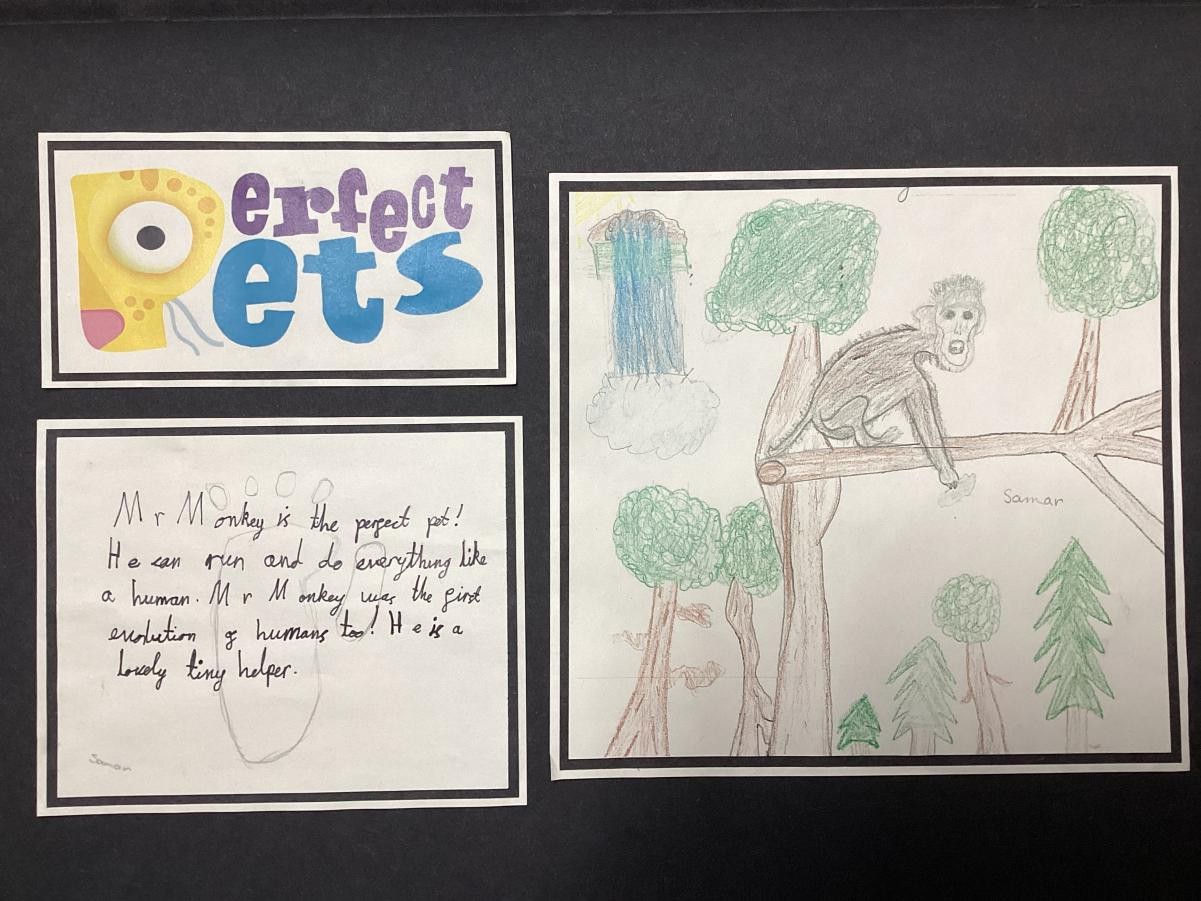 Perfect
Pets
Mr Monkey is the perfect pet!
He can run and do everything like
a human. Mr Monkey was the first
evolution of humans too! He is a
lovely tiny helper.
Samar
Samar